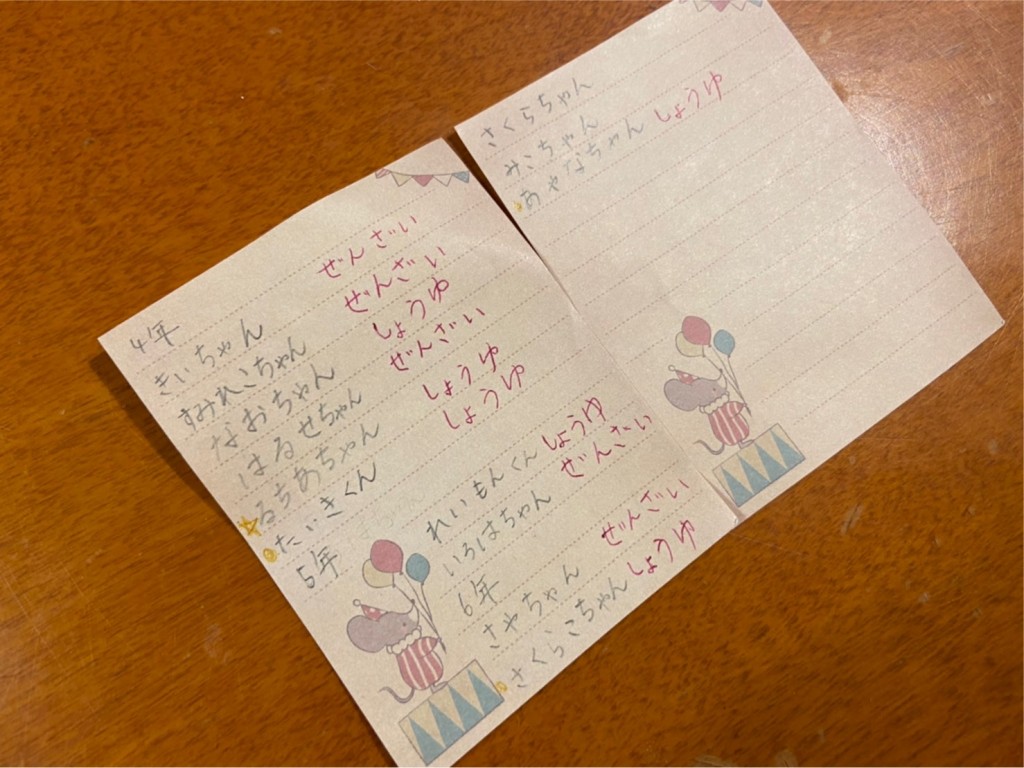 4年
きいちゃん ぜんざい
すみれこちゃん ぜんざい
なおちゃん しょうゆ
はるせちゃん ぜんざい
るちあちゃん しょうゆ
たいきくん しょうゆ
5年
れいもんくん しょうゆ
いろはちゃん ぜんざい
6年
さやちゃん ぜんざい
さくらこちゃん しょうゆ
さくらちゃん
みこちゃん
あやなちゃん しょうゆ